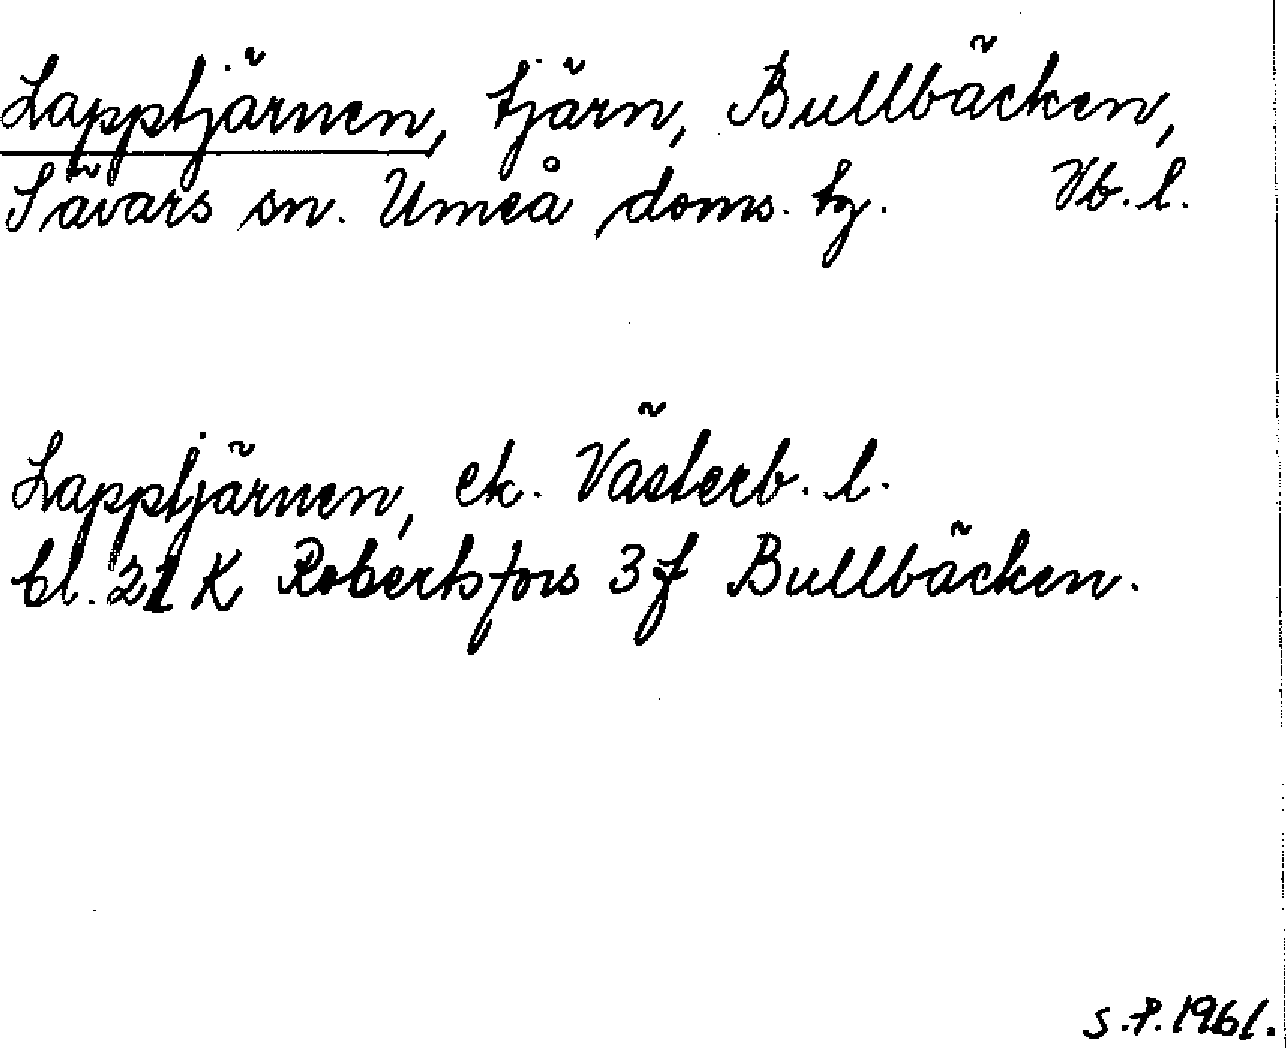 Lapptjärnen, tjärn, Bullbäcken,
Sävars sn. Umeå doms. tg. Vb. l.
Lapptjärnen, ek. Västerb. l.
bl. 21 K Robertsfors 3 f Bullbäcken.
S.P. 1961.